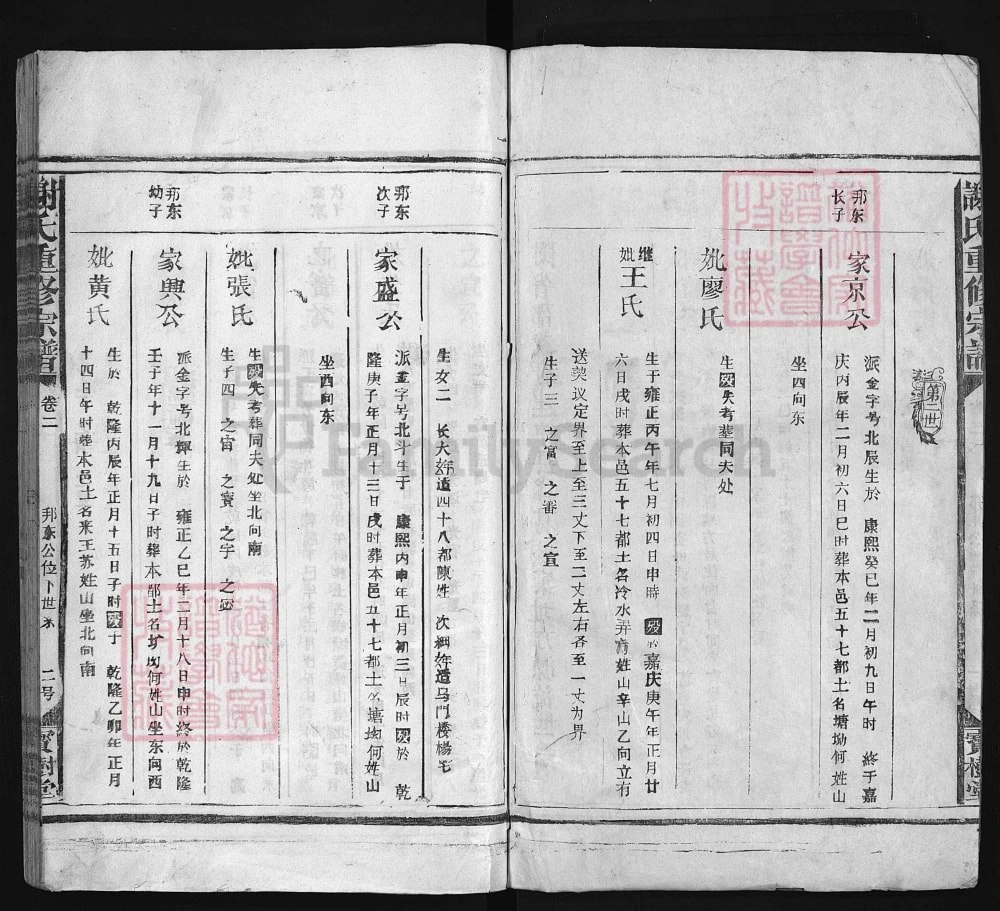 謝氏重修宗譜
第二世
寶樹堂
邦东
长子
家京公
派金字号北辰生於 康熙癸巳年二月初九日午时 終于嘉
庆丙辰年二月初六日巳时葬本邑五十七都土名塘坳何姓山
坐酉向东
妣廖氏
生歿失考葬同夫处
继
妣王氏
生于雍正丙午年七月初四日申時 歿於嘉庆庚午年正月廿
六日戌时葬本邑五十七都土名冷水弄方姓山辛山乙向立有
送契议定界至上至三丈下至二丈左右各至一丈为界
生子三 之富 之番 之宣
生女二 长大姊适四十八都陳姓 次細姊适乌门楼楊宅
邦东
次子
家盛公
派金字号北斗生于 康熙内申年正月初三日辰时歿於 乾
隆庚子年正月十三日戌时葬本邑五十七都土名塘坳何姓山
坐酉向东
妣張氏
生歿失考葬同夫处坐北向南
生子四 之寅 之賓 之宇 之密
邦东
幼子
家興公
派金字号北輝生於 雍正乙巳年三月十八日申时終於乾隆
壬子年十一月十九日子时葬本都土名圹坳何姓山坐东向西
妣黄氏
生於 乾隆内辰年正月十五日子时歿于 乾隆乙卯年正月
十四日午时葬本邑土名来王苏姓山坐北向南
謝氏重修宗譜
卷二
邦东公位下世系
二号
寶樹堂